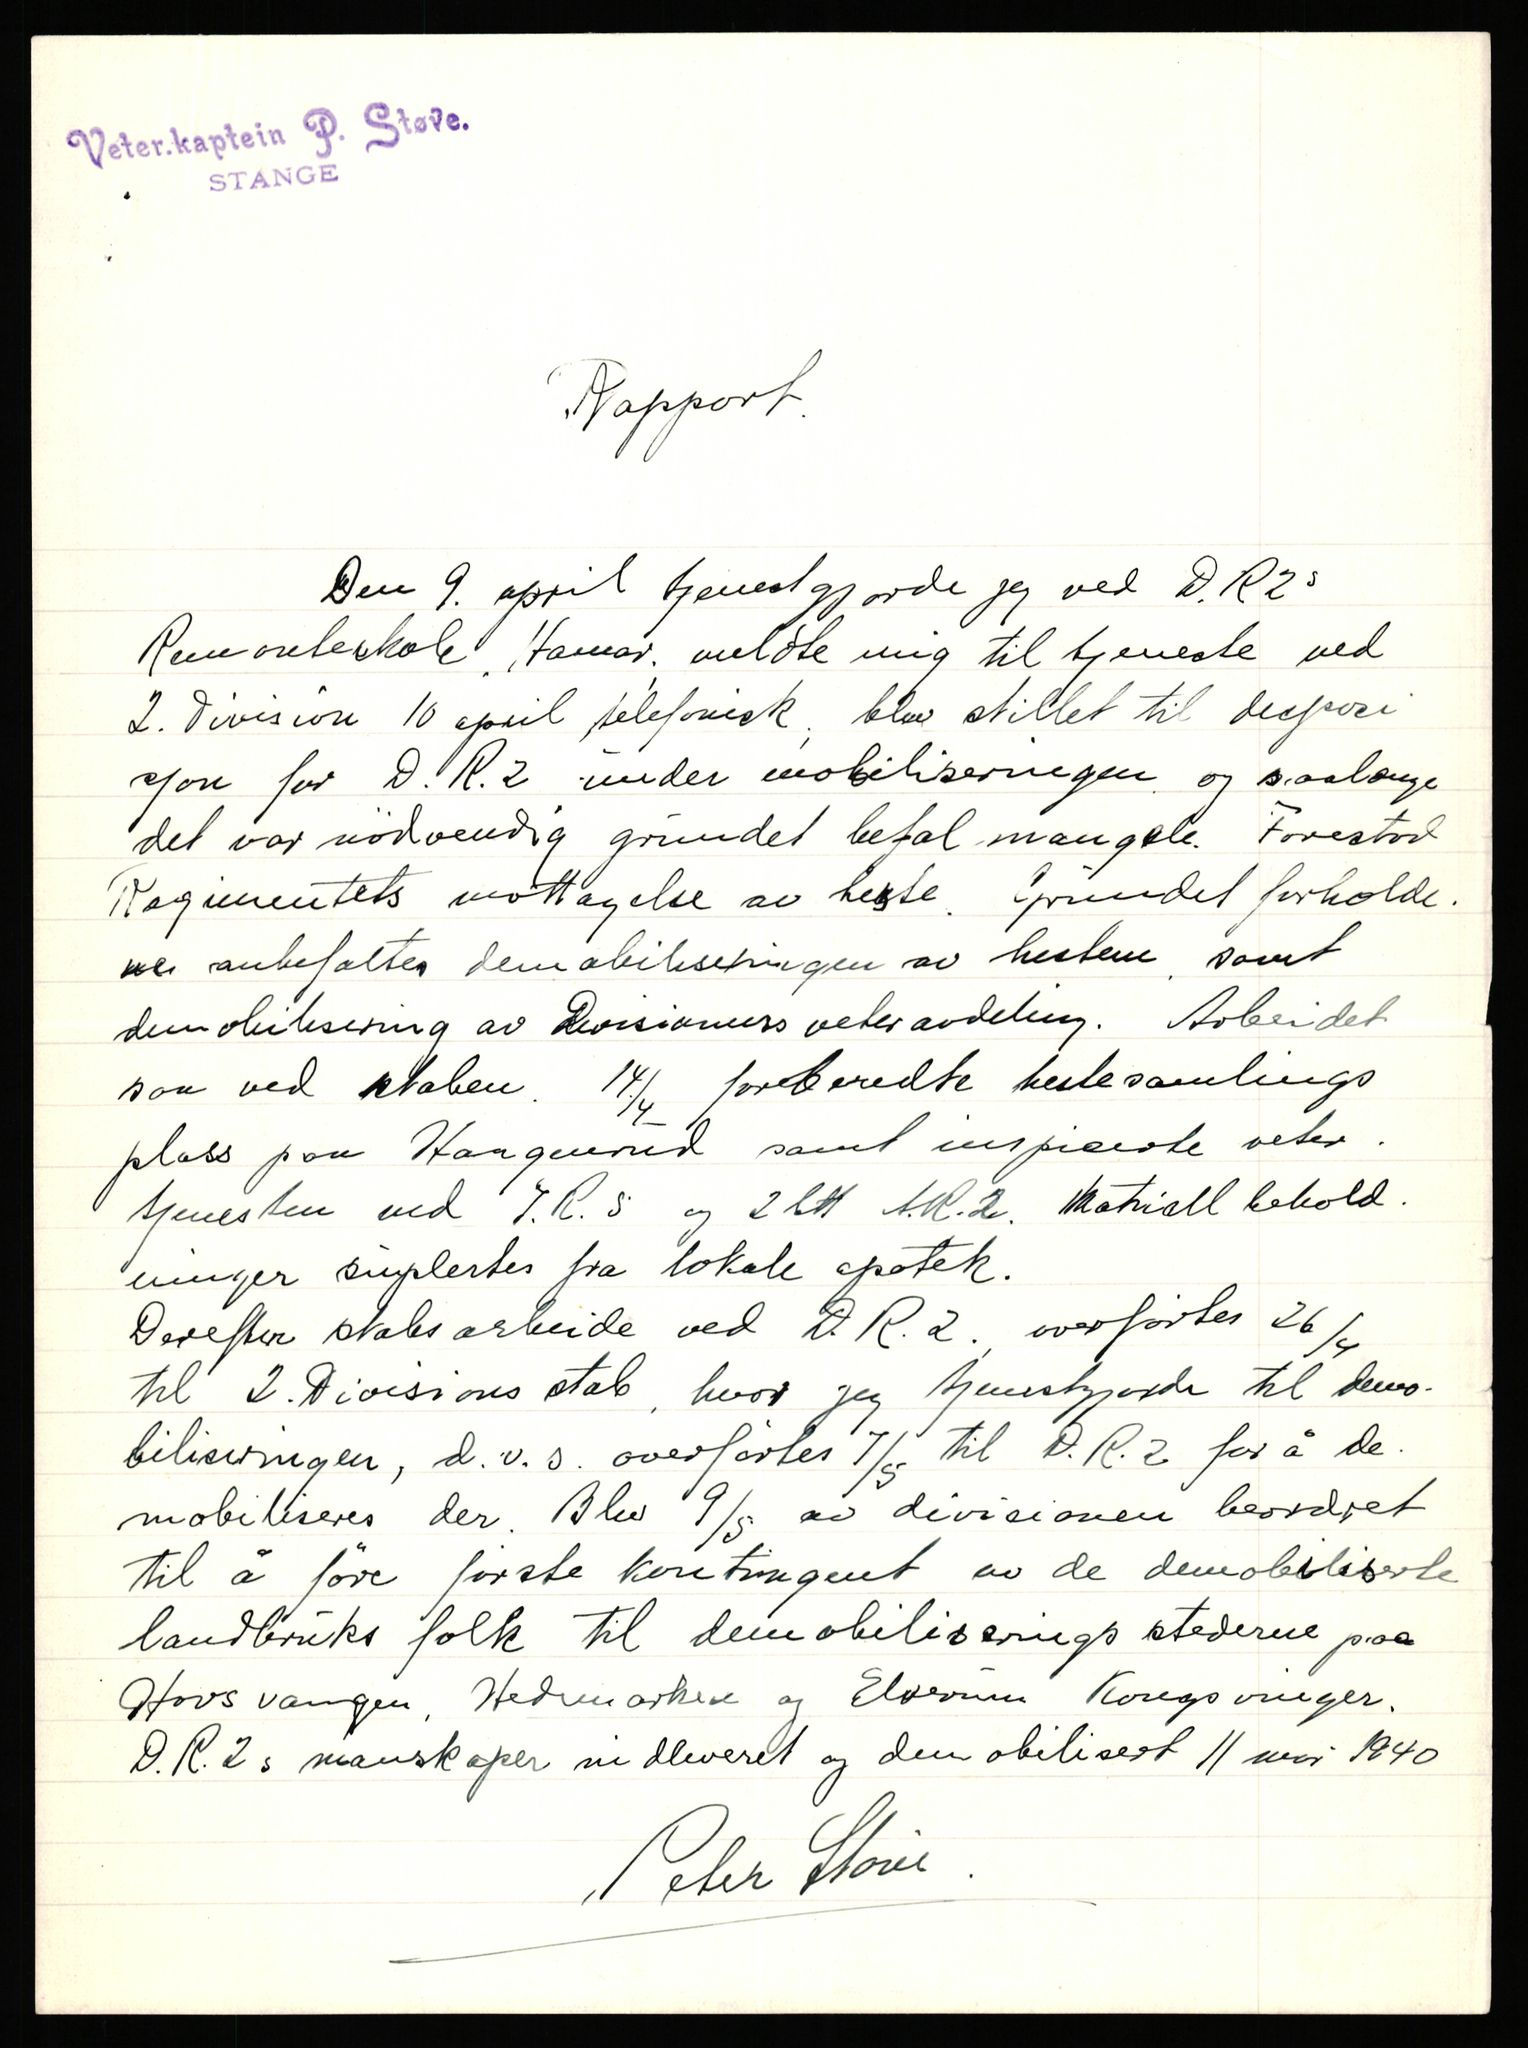 Veter.kaptein P. Støve.
STANGE
Rapport.
Den 9. april tjenestgjorde jeg ved D.R2s
Remonteskole, Hamar, meldte mig til tjeneste ved
2. Division 10 april telefonisk, blev stillet til disposi
sjon for D.R.2 under mobiliseringen og saalænge
det var nödvendig grundet befal mangel. Forestod
Regimentets mottagelse av heste. Grundet forholde.
ne anbefaltes demobiliseringen av hestene, samt
demobilisering av Divisionens veteravdeling. Arbeidet
saa ved staben. 14/4 forberedte hestesamlings
plass paa Haugnerud samt inspiserte veter.
tjenesten ved I.R. 5 og 2 btt A.R.2. Matriell behold.
ninger suplertes fra lokale apotek.
Derefter stabsarbeide ved D.R.2, overförtes 26/4
til 2. Divisions stab, hvor jeg tjenestgjorde til demo-
biliseringen, d.v.s. overförtes 7/5 til D.R.2 for å de.
mobiliseres der. Blev 9/5 av divisionen beordret
til å före förste kontingent av de demobiliserte
landbruks folk til demobiliserings stederne paa
Hovsvangen, Hedemarken og Elverum Kongsvinger.
D.R.2s manskaper indleveret og demobilisert 11 mai 1940
Peter Støve.